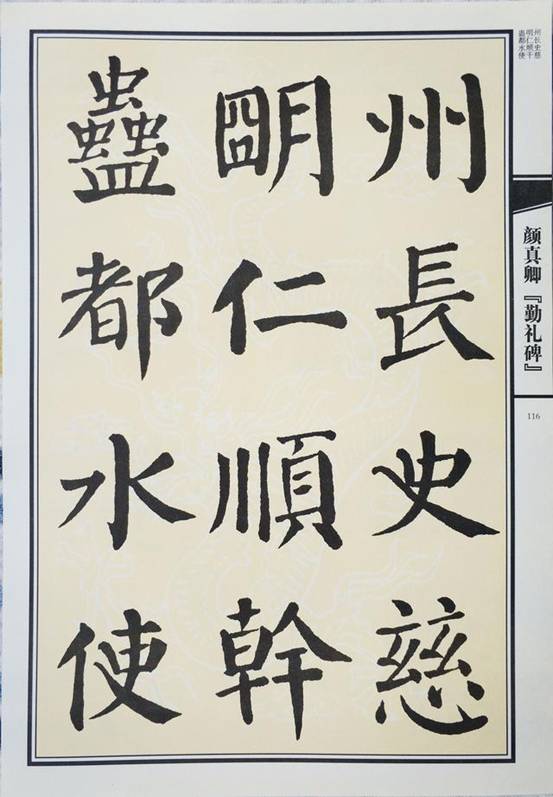 州長史慈
朙仁順幹
蠱都水使
州长史慈
明仁顺干
蛊都水使
颜真卿『勤礼碑』
116